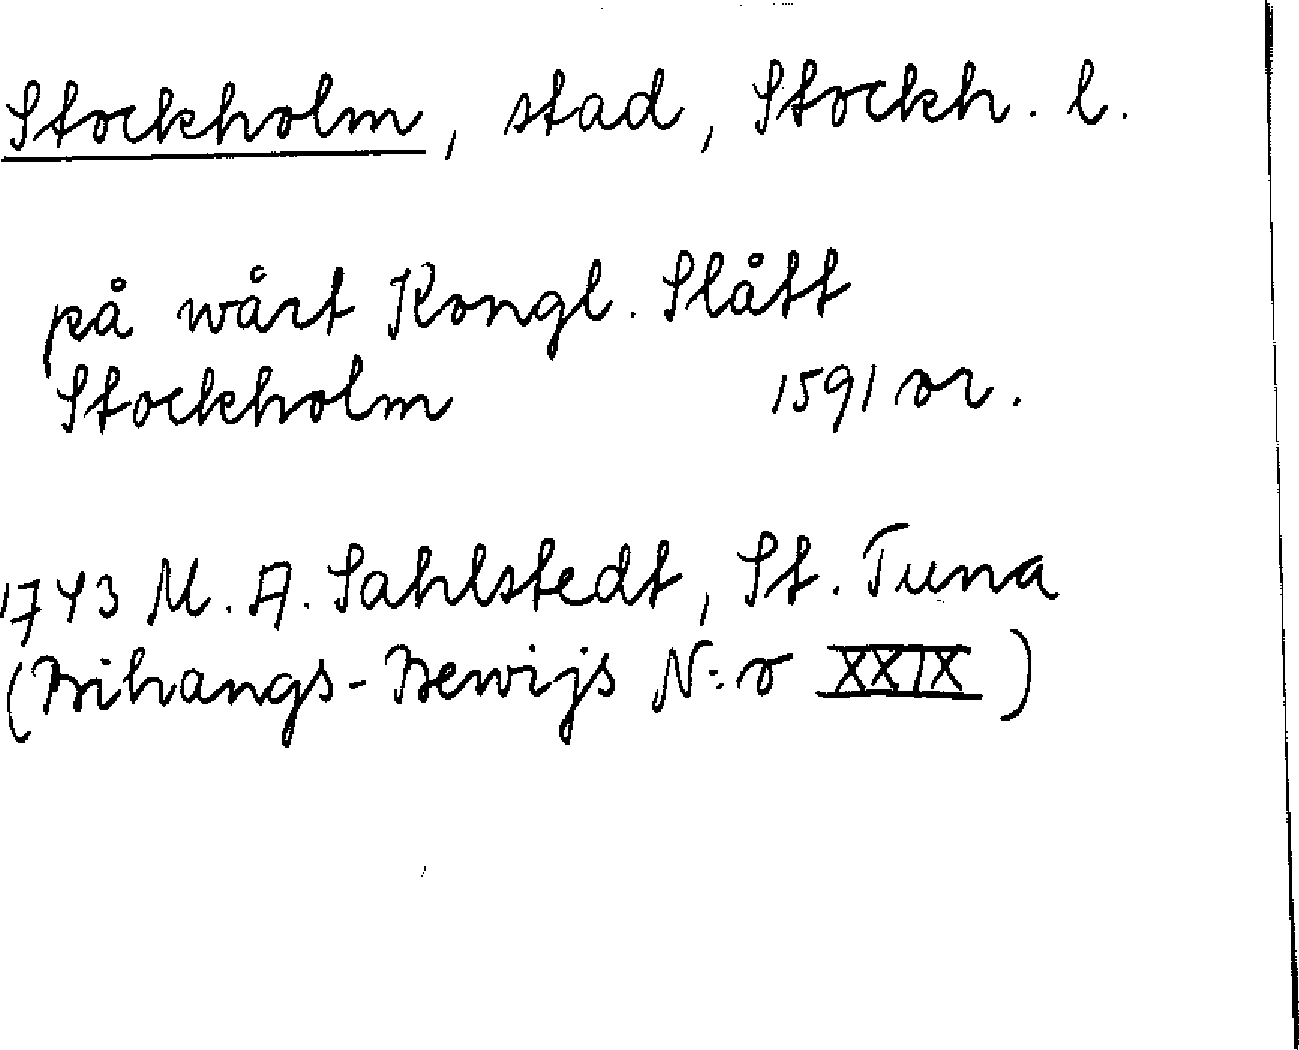 Stockholm, stad, Stockh. l.
på wårt Kongl. Slått
Stockholm 1591 or.
1743 M. A. Sahlstedt, St. Tuna
(Bihangs-Bewijs N:o XXIX)